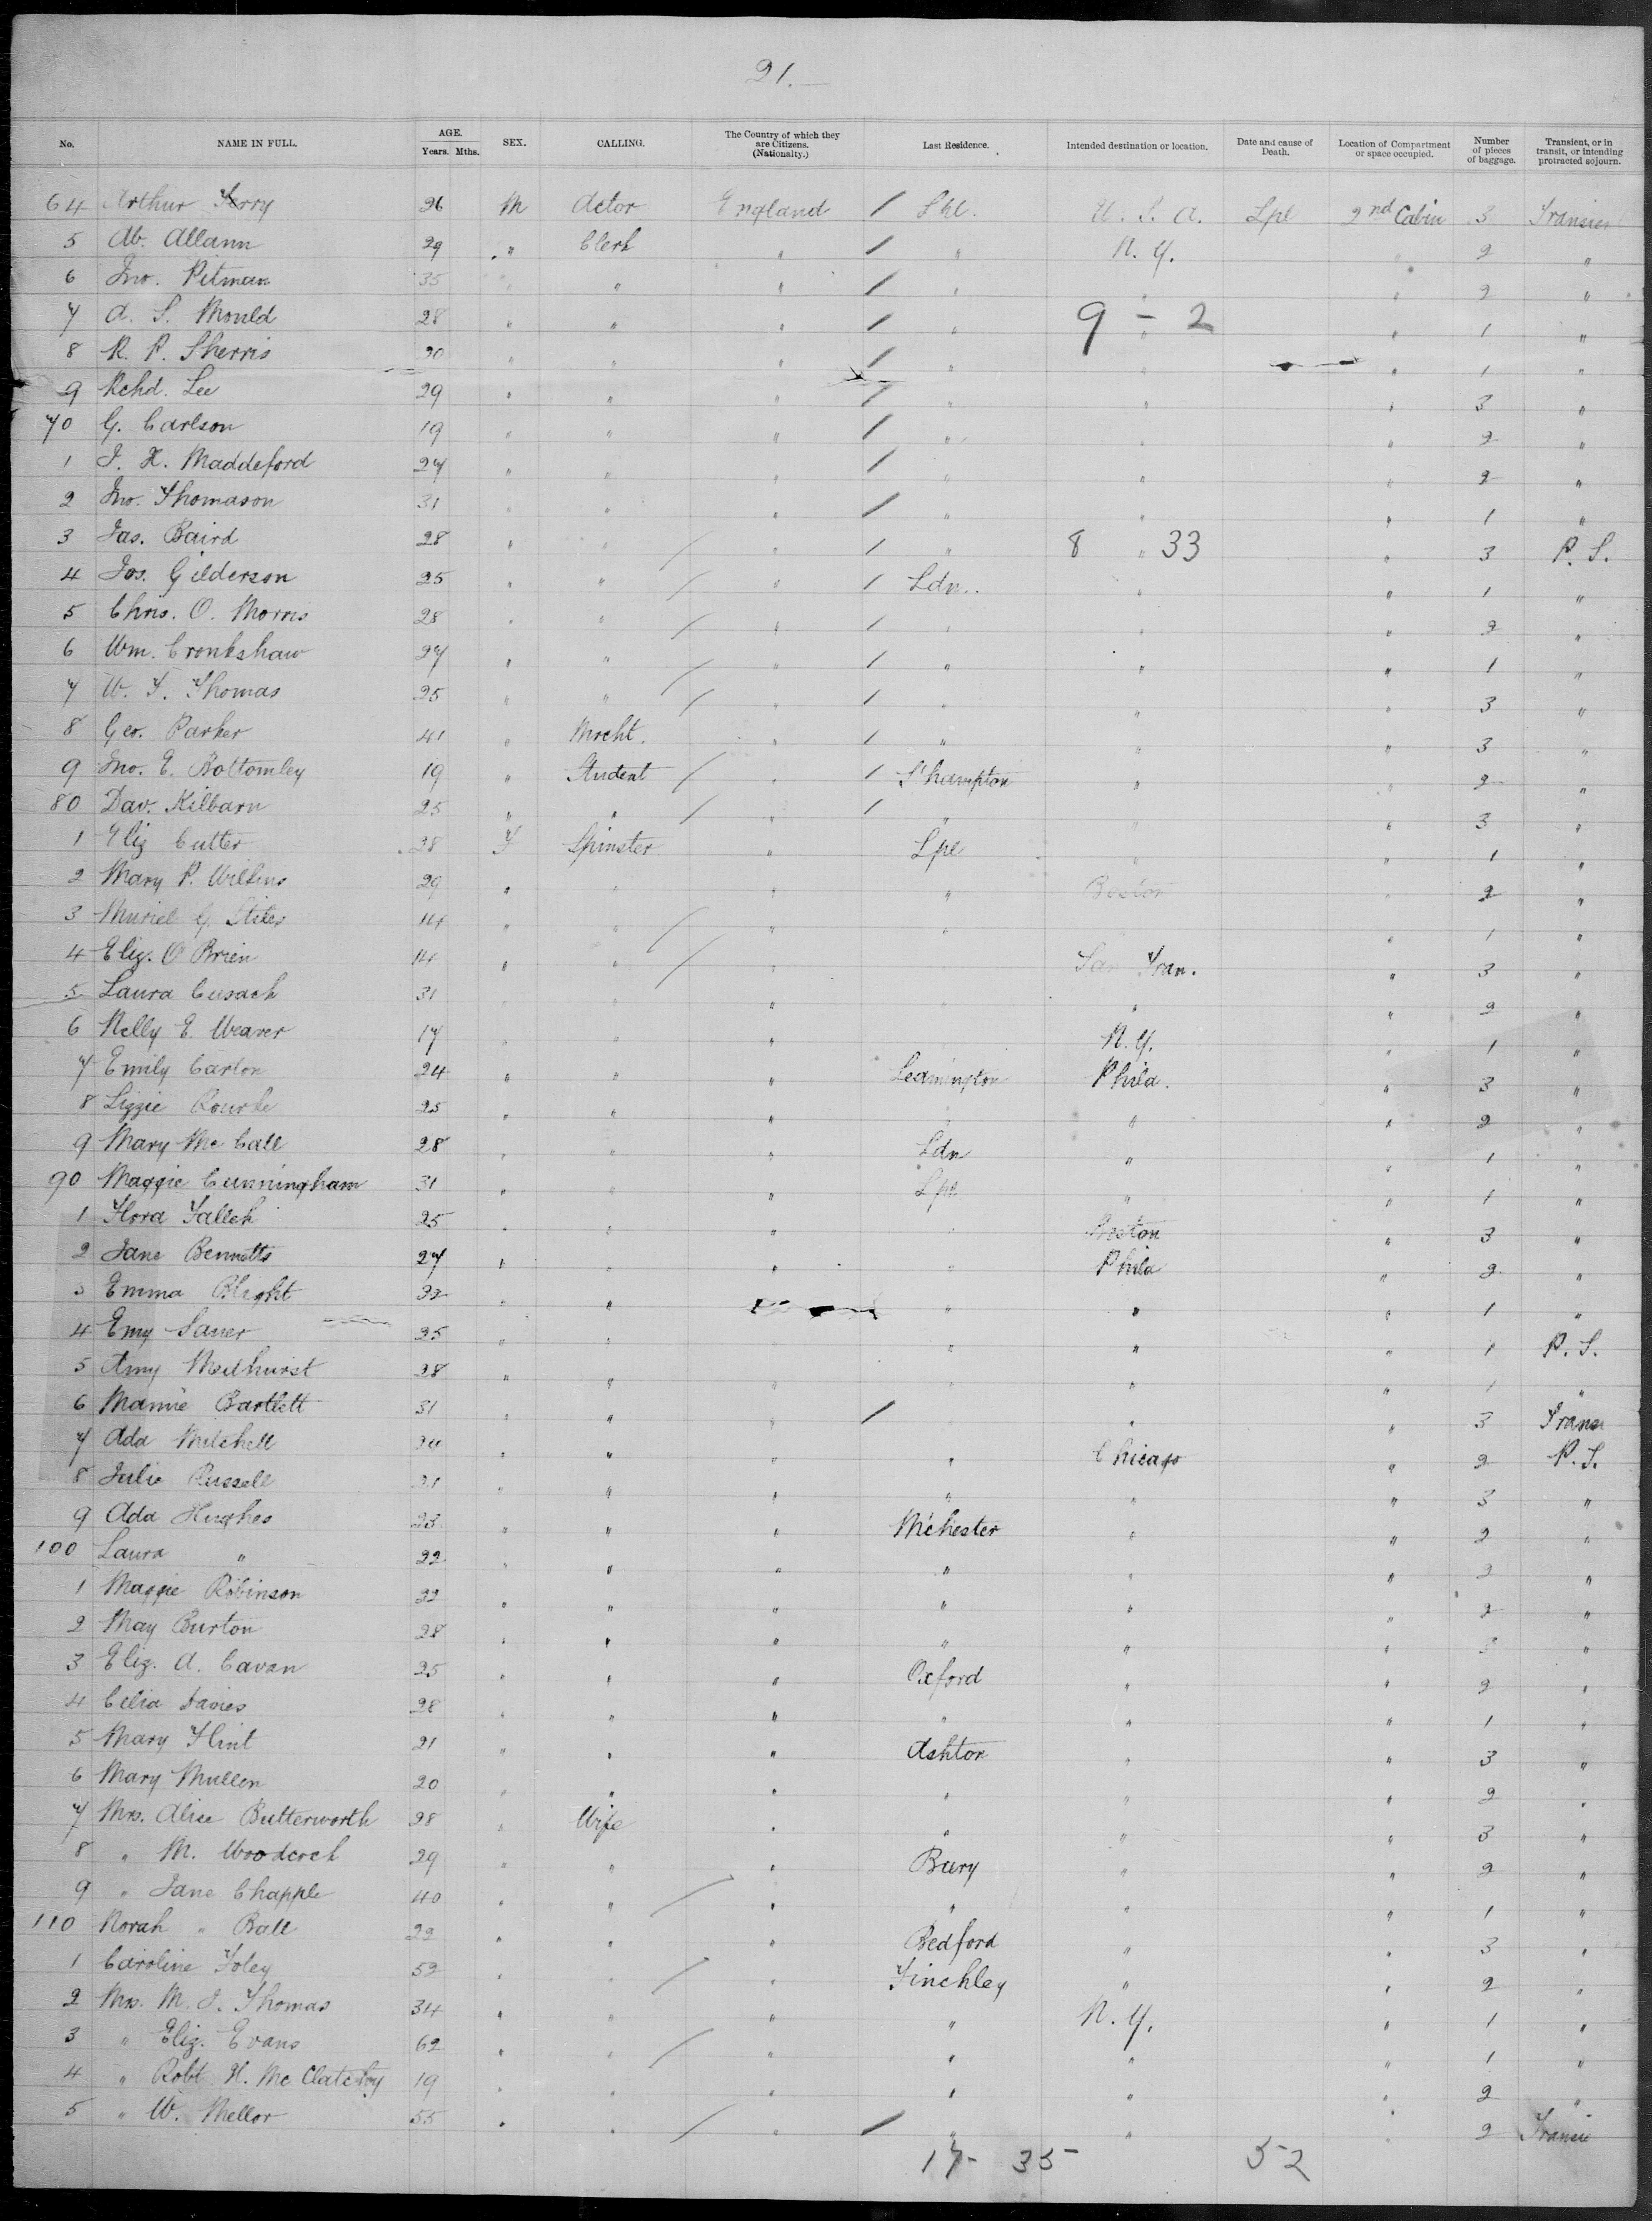 21.
No. NAME IN FULL. AGE. Years. Mths. SEX. CALLING. The Country of which they are Citizens. (Nationalty.) Last Residence. Intended destination or location. Date and cause of Death. Location of Compartment or space occupied. Number of pieces of baggage. Transient, or in transit, or intending protracted sojourn.
64 Arthur 26 M Actor England / U. S. A. Lpl 2nd Cabin 3 Transien
5 Ab. Allann 29 " Clerk " / " N. Y. " 2 "
6 Jno. Pitman 35 " " " / " " " 2 "
7 A. S. Mould 28 " " " / " 9 - 2 " 1 "
8 R. P. Sherris " " " / " " " 1 "
9 Rchd. Lee 29 " " " / " " " 3 "
70 G. Carlson 19 " " " / " " " 2 "
1 J. H. Maddeford 27 " " " / " " " 2 "
2 Jno. Thomason 31 " " " / " " " 1 "
3 Jas. Baird 28 " " / " / " 8 " 33 " 3 P. S.
4 Jos. Gilderson 25 " " / " / Ldn. " " 1 "
5 Chris. O. Morris 28 " " / " / " " " 2 "
6 Wm. Cronkshaw 27 " " / " / " " " 1 "
7 W. T. Thomas 25 " " / " / " " " 3 "
8 Geo. Parker 41 " Mrcht. " / " " " 3 "
9 Jno. E. Bottomley 19 " Student / " / S'hampton " " 2 "
80 Dav. Kilbarn 25 " " / " / " " " 3 "
1 Eliz Cutter 28 F Spinster " Lpl " " 1 "
2 Mary P. Wilkins 29 " " " " Boston " 2 "
3 Muriel G. Stites 14 " " / " " " 1 "
4 Eliz. O Brien 14 " " / " San Fran. " 3 "
5 Laura Cusach 31 " " " " " 2 "
6 Nelly E. Weaver 17 " " " N. Y. " 1 "
7 Emily Carlon 24 " " " Leamington Phila. " 3 "
8 Lizzie Rourke 25 " " " " " 2 "
9 Mary Mc Call 28 " " " Ldn " " 1 "
90 Maggie Cunningham 31 " " " Lpl " " 1 "
1 Flora Falleh 25 " " " Boston " 3 "
2 Jane Bennetts 27 " " " " Phila " 2 "
3 Emma Blight 32 " " " " " 1 "
4 Emy Saner 25 " " " " " 1 P. S.
5 Amy Medhurst 28 " " " " " " 1 "
6 Mamie Bartlett 31 " " " / " " 3 Trans
7 Ada Mitchell 24 " " " " Chicago " 2 P. S.
8 Julia Russell 21 " " " " " " 3 "
9 Ada Hughes 23 " " " M'chester " " 2 "
100 Laura " 22 " " " " " " 2 "
1 Maggie Robinson 22 " " " " " " 2 "
2 May Burton 28 " " " " " " 3 "
3 Eliz. A. Cavan 25 " " " Oxford " " 2 "
4 Celia Davies 28 " " " " " " 1 "
5 Mary Flint 21 " " " Ashton " " 3 "
6 Mary Mullen 20 " " " " " " 2 "
7 Mrs. Alice Butterworth 28 " Wife " " " " 3 "
8 " M. Woodcock 29 " " " Bury " " 2 "
9 " Jane Chapple 40 " " / " " " " 1 "
110 Norah " Ball 22 " " " Bedford " " 3 "
1 Caroline Foley 52 " " / " Finchley " " 2 "
2 Mrs. M. J. Thomas 34 " " " " N. Y. " 1 "
3 " Eliz. Evans 62 " " / " " " " 1 "
4 " Robt. H. Mc Clatchy 19 " " " " " " 2 "
5 " W. Mellor 55 " " / " / " " " 2 Transi
17- 35- 52